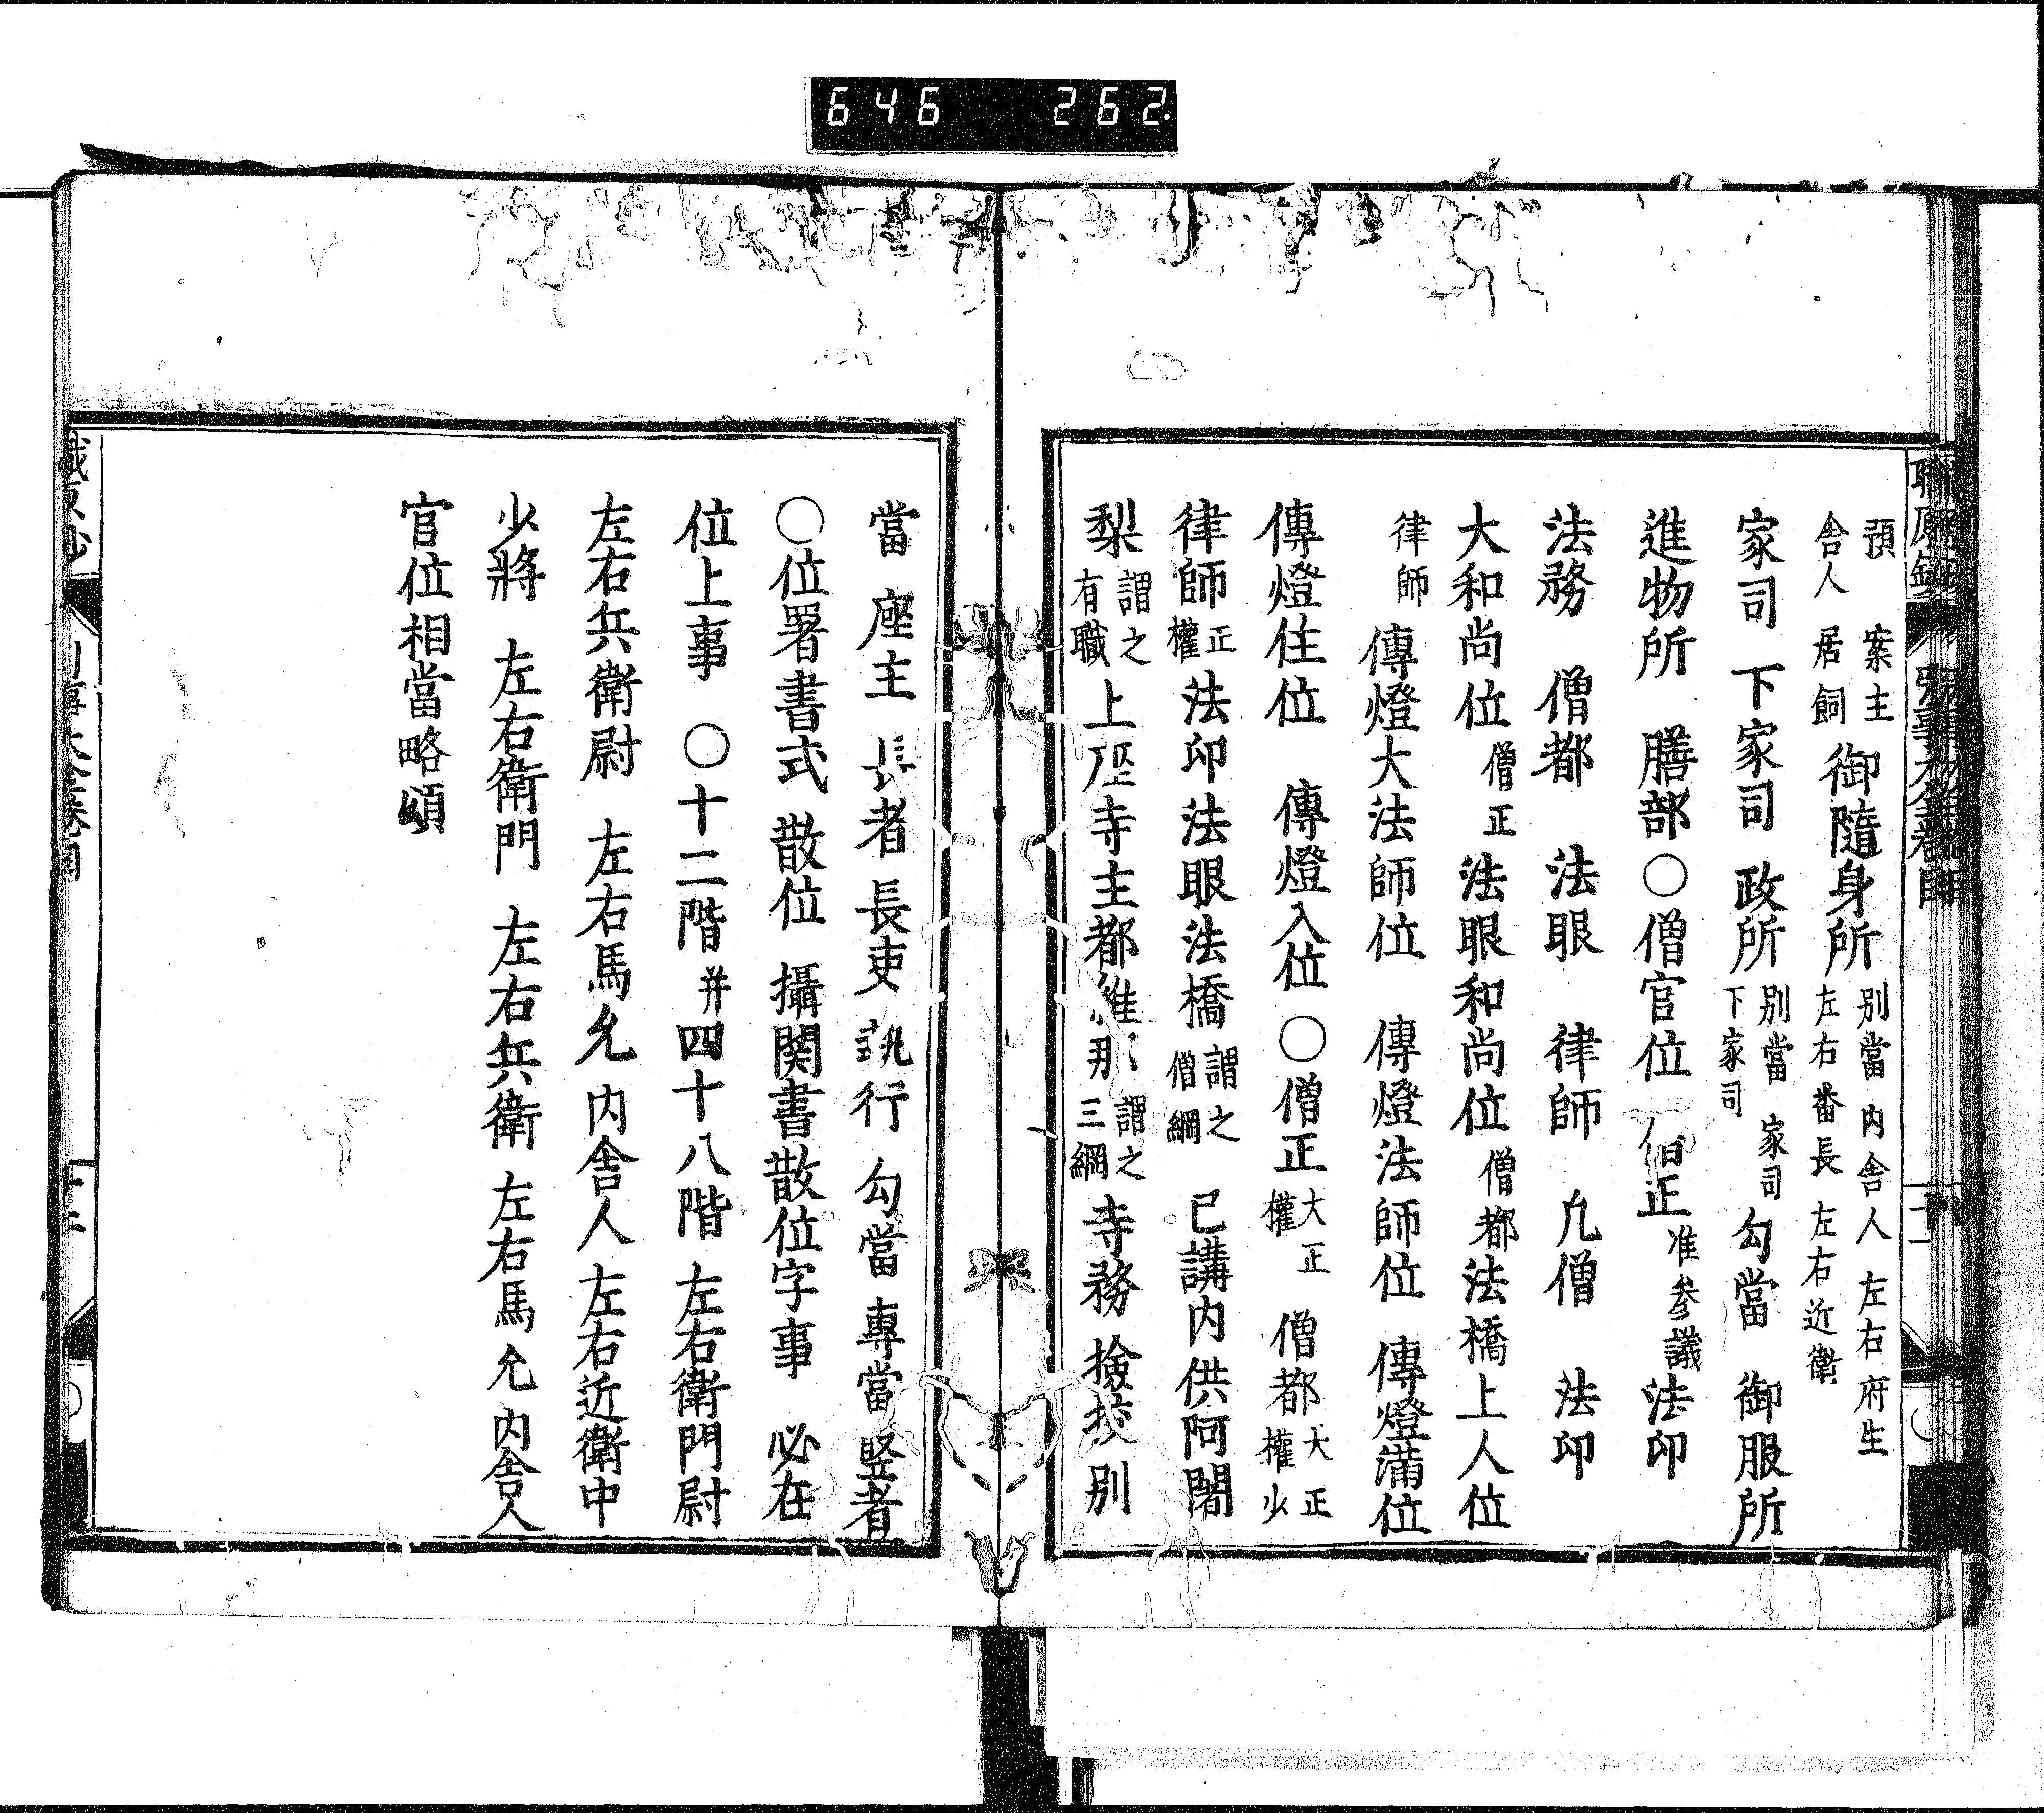 646 262.
預 案主
舎人 居飼 御隨身所 別當 内舎人 左右府生
左右番長 左右近衛
家司 下家司 政所 別當 家司
下家司 勾當 御服所
進物所 膳部 〇僧官位 僧正 准参議 法印
法務 僧都 法眼 律師 凢僧 法印
大和尚位 僧正 法眼和尚位 僧都 法橋上人位
律師 傳燈大法師位 傳燈法師位 傳燈満位
傳燈住位 傳燈入位 〇僧正 大正
權 僧都 大正
權少
律師 正
權 法印 法眼 法橋 謂之
僧綱 已講 内供 阿闍
梨 謂之
有職 上座 寺主 都維那 謂之
三綱 寺務 撿挍 別
當 座主 長者 長吏 執行 勾當 專當 竪者
〇位署書式 散位 攝関書散位字事 必在
位上事 〇十二階 并 四十八階 左右衛門尉
左右兵衛尉 左右馬允 内舎人 左右近衛中
少將 左右衛門 左右兵衛 左右馬允 内舎人
官位相當略頌